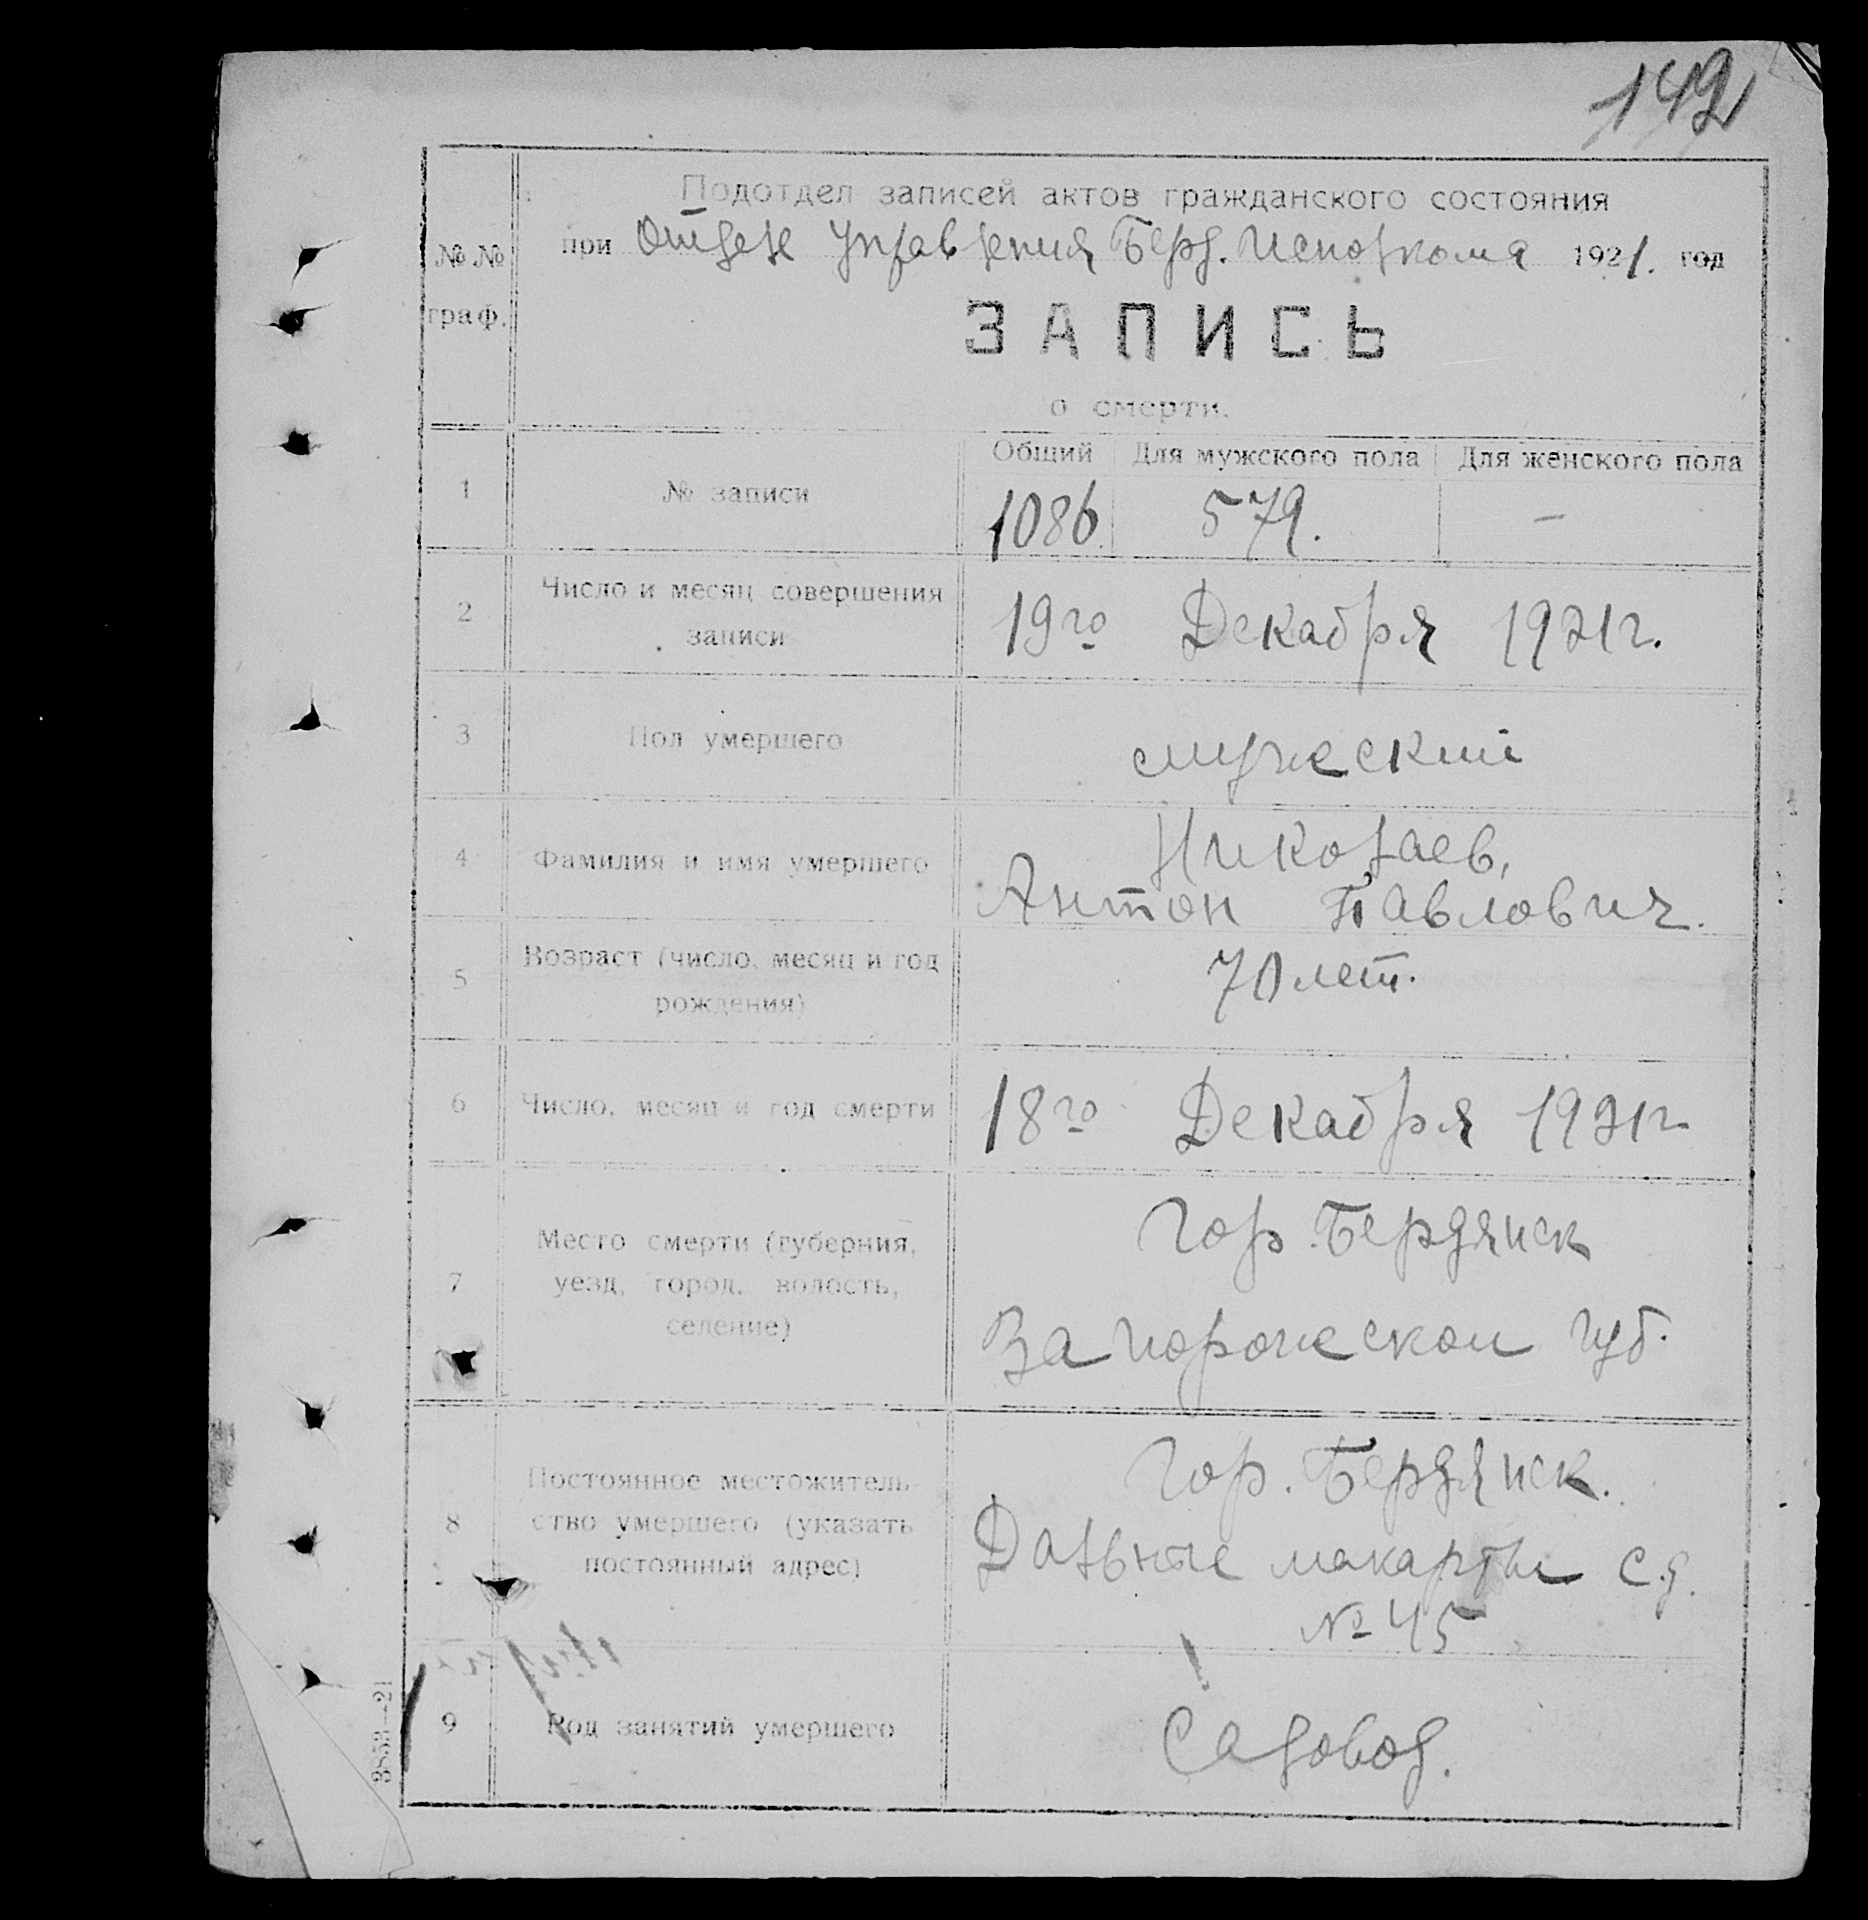 142
Подотдел записей актов гражданского состояния
№ №
граф.
при Отделе Управления Берд. Исполкома 1921. год
ЗАПИСЬ
о смерти.
Общий Для мужского пола Для женского пола
1 № записи 1086 579. —
2 Число и месяц совершения
записи
19го Декабря 1921г.
3 Пол умершего мужеский
4 Фамилия и имя умершего
Николаев,
Антон Павлович.
5 Возраст (число, месяц и год
рождения)
70 лет.
6 Число, месяц и год смерти 18го Декабря 1921г
7 Место смерти (губерния,
уезд, город, волость,
селение)
Гор. Бердянск
Запорожской губ.
8 Постоянное местожитель-
ство умершего (указать
постоянный адрес)
Гор. Бердянск.
Дальние макорты с.д.
№ 45
9 Род занятий умершего Садовод.
3853—21